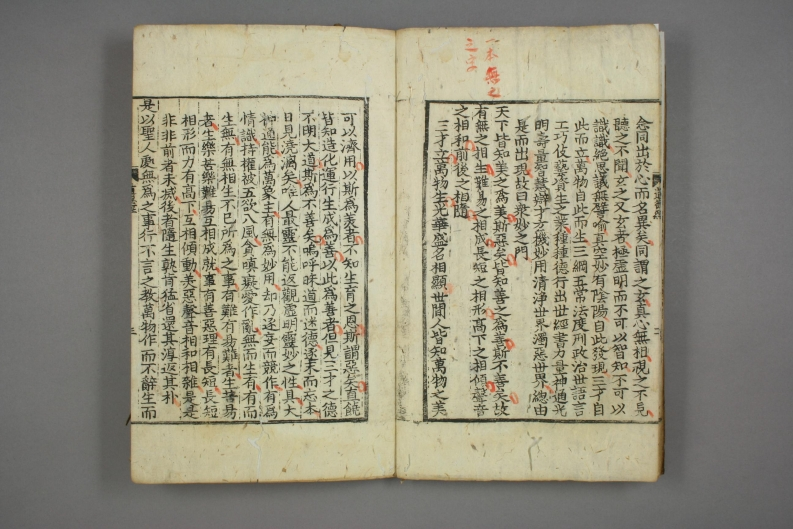 一本無之
之字
念同出於心而名異矣同謂之玄眞心無相視之不見
聽之不聞玄之又玄者極虛明而不可以智知不可以
識識絕思議無譬喻眞空妙有陰陽自此發現三才自
此而立萬物自此而生三綱五常法度刑政治世語言
工巧伎藝資生之業種種德行出世經書力量神通光
明壽量智慧辯才方機妙用清淨世界濁惡世界總由
是而出現故曰衆妙之門
天下皆知美之爲美斯惡矣皆知善之爲善斯不善矣故
有無之相生難易之相成長短之相形高下之相傾聲音
之相和前後之相隨
三才立萬物生光華盛名相顯世間人皆知萬物之美
可以濟用以斯爲美者不知生育之恩斯謂惡矣直饒
皆知造化運行生成爲善以此爲善者但見三才之德
不明大道斯爲不善矣嗚呼昧道而迷德逐末而忘本
日見澆漓矣唯人最靈不能返觀虛明靈妙之性具大
神通能爲萬象主有無爲妙用却乃逐妄而競作有爲
情識持權被五欲八風貪嗔癡愛作亂無而生有有而
生無有無相生不已所爲之事有難有易難者生苦易
者生樂苦樂難易互相成就事有善惡理有長短長短
相形而力有高下互相傾動美惡聲音相和相雜是是
非非前者未滅後者隨生孰肯猛省還其淳返其朴
是以聖人處無爲之事行不言之教萬物作而不辭生而